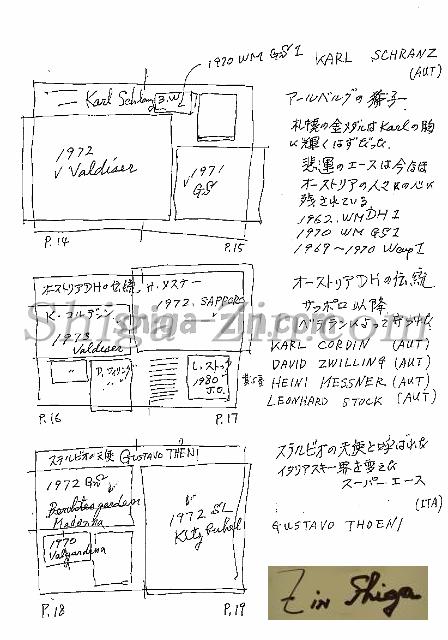 1970 WM GS 1
KARL SCHRANZ
(AUT)
Karl Schranz
アールベルグの獅子
札幌の金メダルはKarlの胸
に輝くはずだった
悲運のエースは今なほ
オーストリアの人々の心に
残されている
1962 WM DH 1
1970 WM GS 1
1969〜1970 Wcup 1
1972
✓ Valdiser
✓ 1971
GS
P.14
P.15
オーストリアDHの伝統
H. メスナー
K. コルデン
1972. SAPPORO
1973
Valdiser
L. ストック
1980
P.16
P.17
オーストリアDHの伝統
サッポロ以降
KARL CORDIN (AUT)
DAVID ZWILLING (AUT)
HEINI MESSNER (AUT)
LEONHARD STOCK (AUT)
Shiga-Zin.com
ステルビオの天使 GUSTAVO THENI
1972
1970
Valgardena
1972 SL
Kitzbuhel
P.18
P.19
ステルビオの天使と呼ばれた
イタリアスキー界を変えた
スーパーエース
(ITA)
GUSTAVO THOENI
Z in Shiga